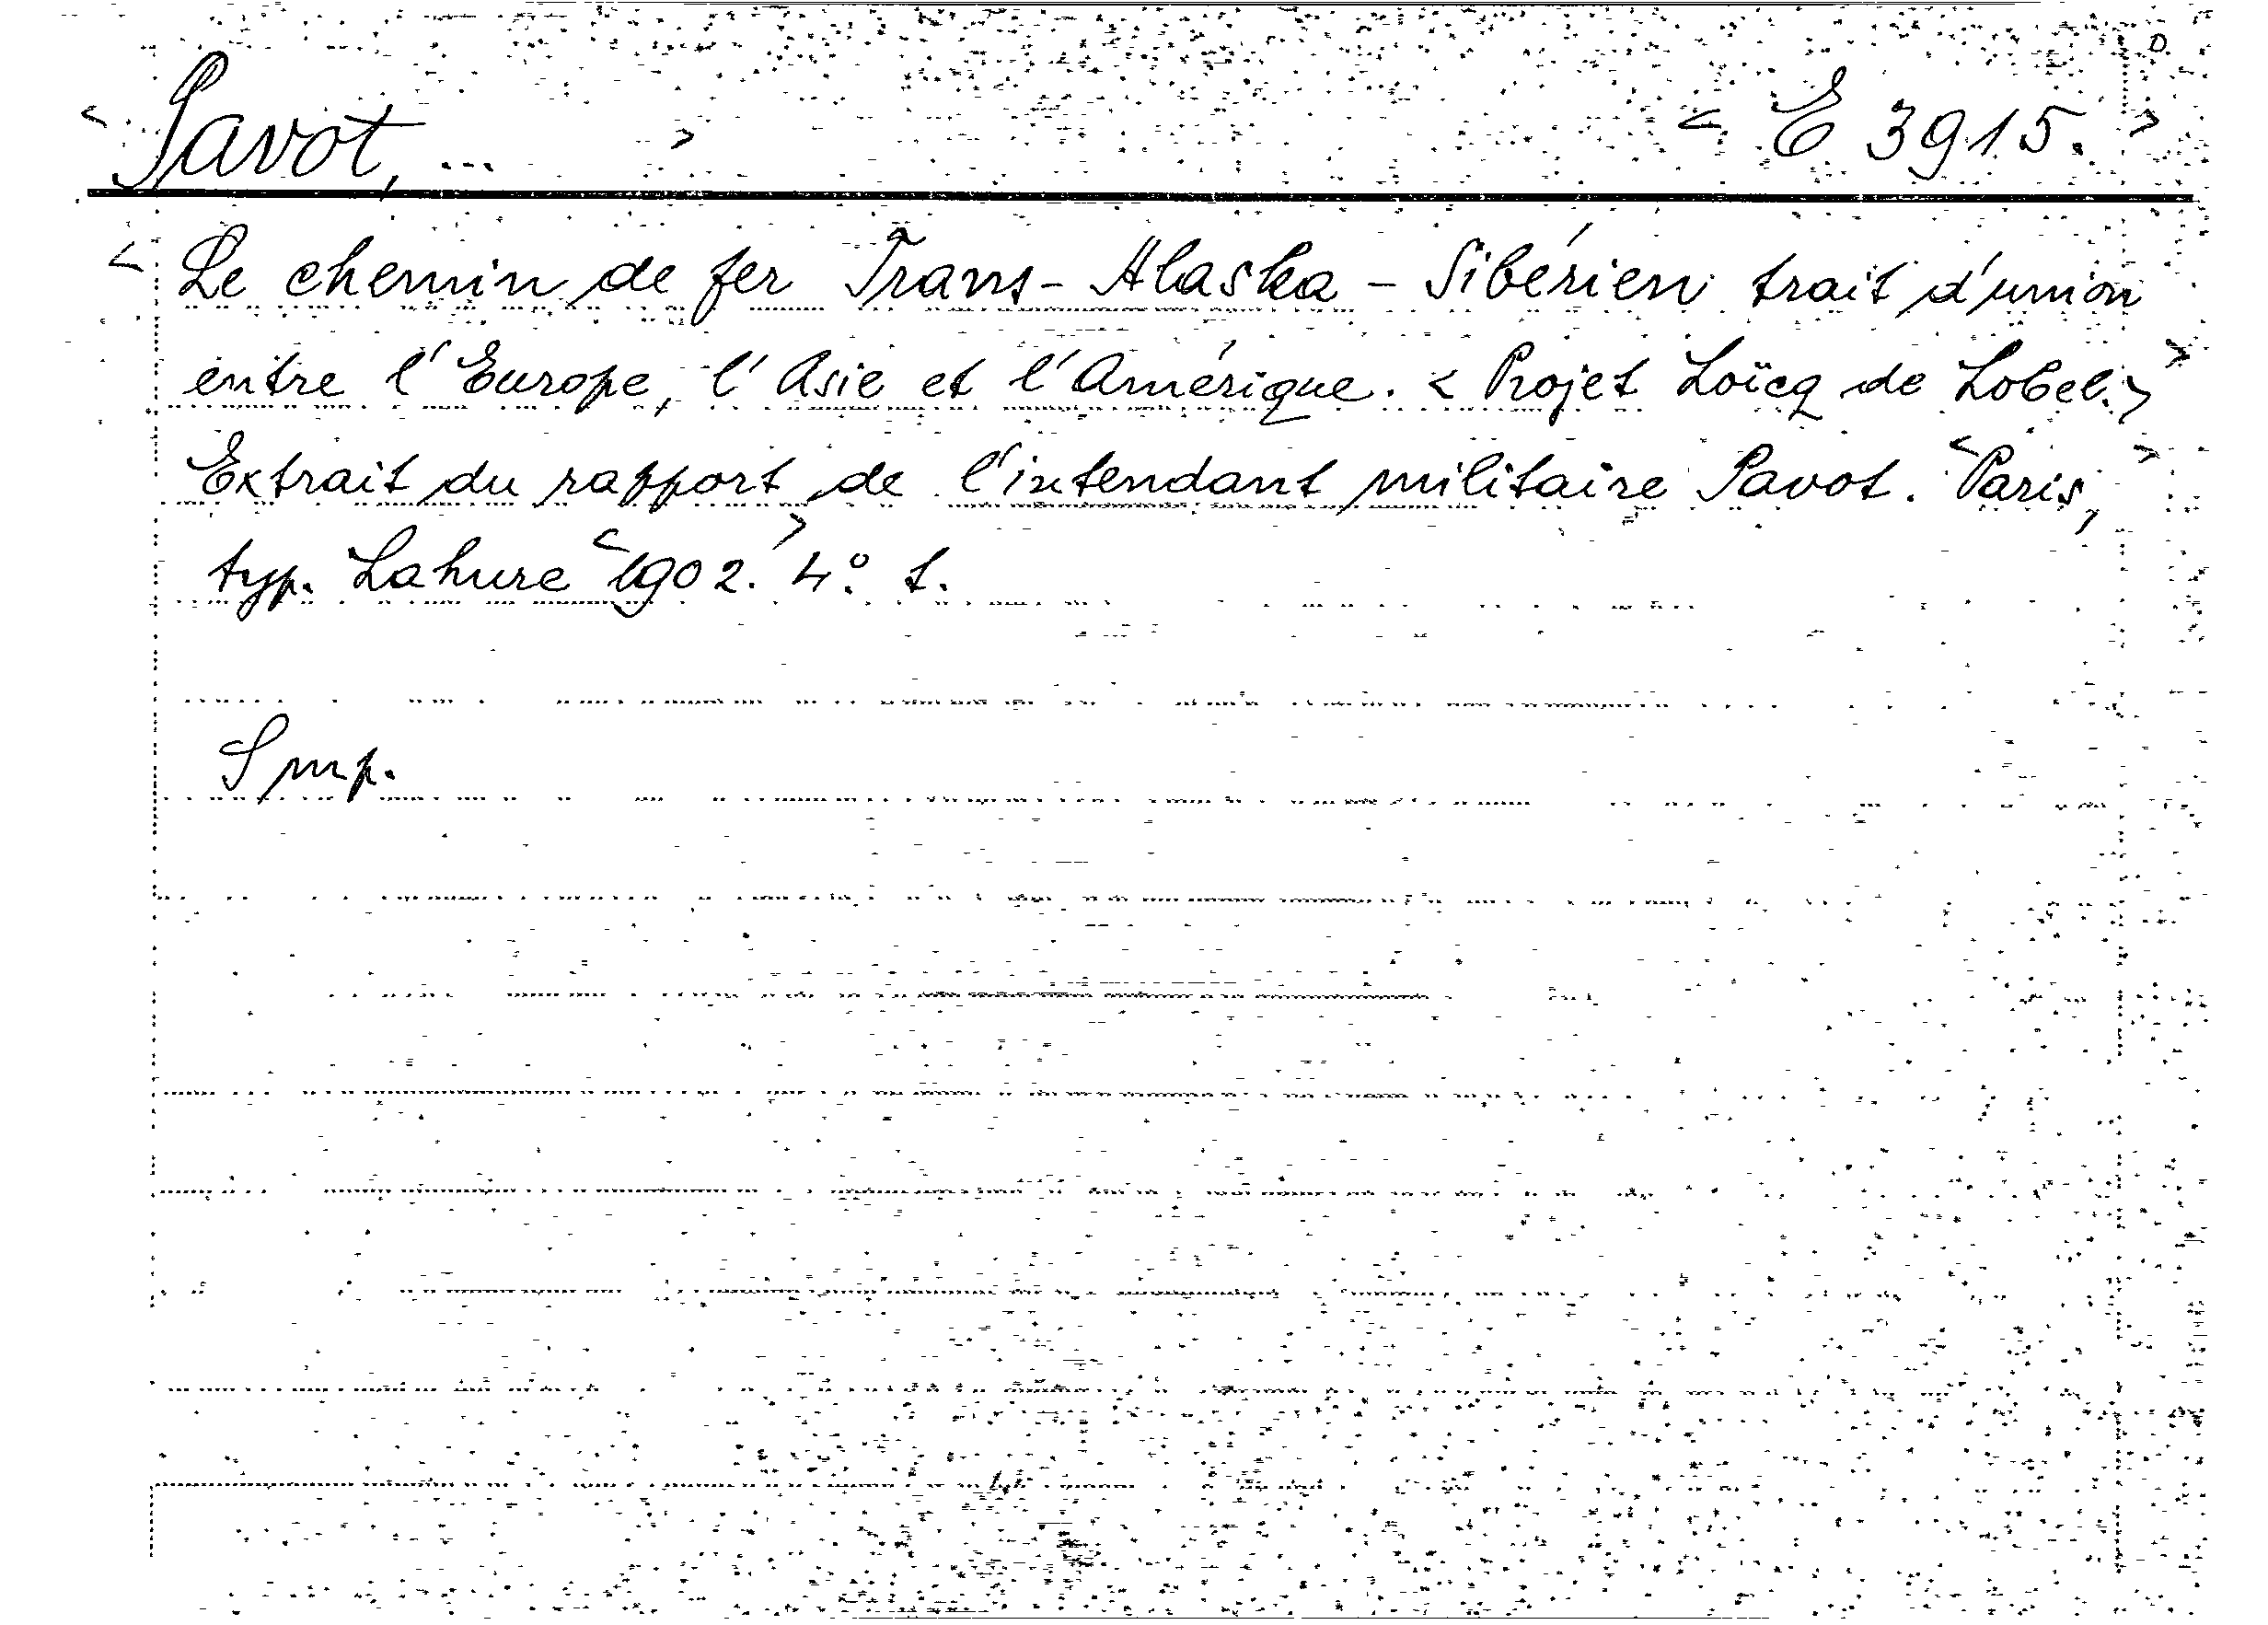 <Savot, ...> <E 3915.>
<Le chemin de fer Trans-Alaska-Sibérien trait d'union
entre l'Europe, l'Asie et l'Amérique. < Projet Loïcq de Lobel.>>
Extrait du rapport de l'intendant militaire Savot. <Paris,>
typ. Lahure <1902.> 4° t.
S mp.